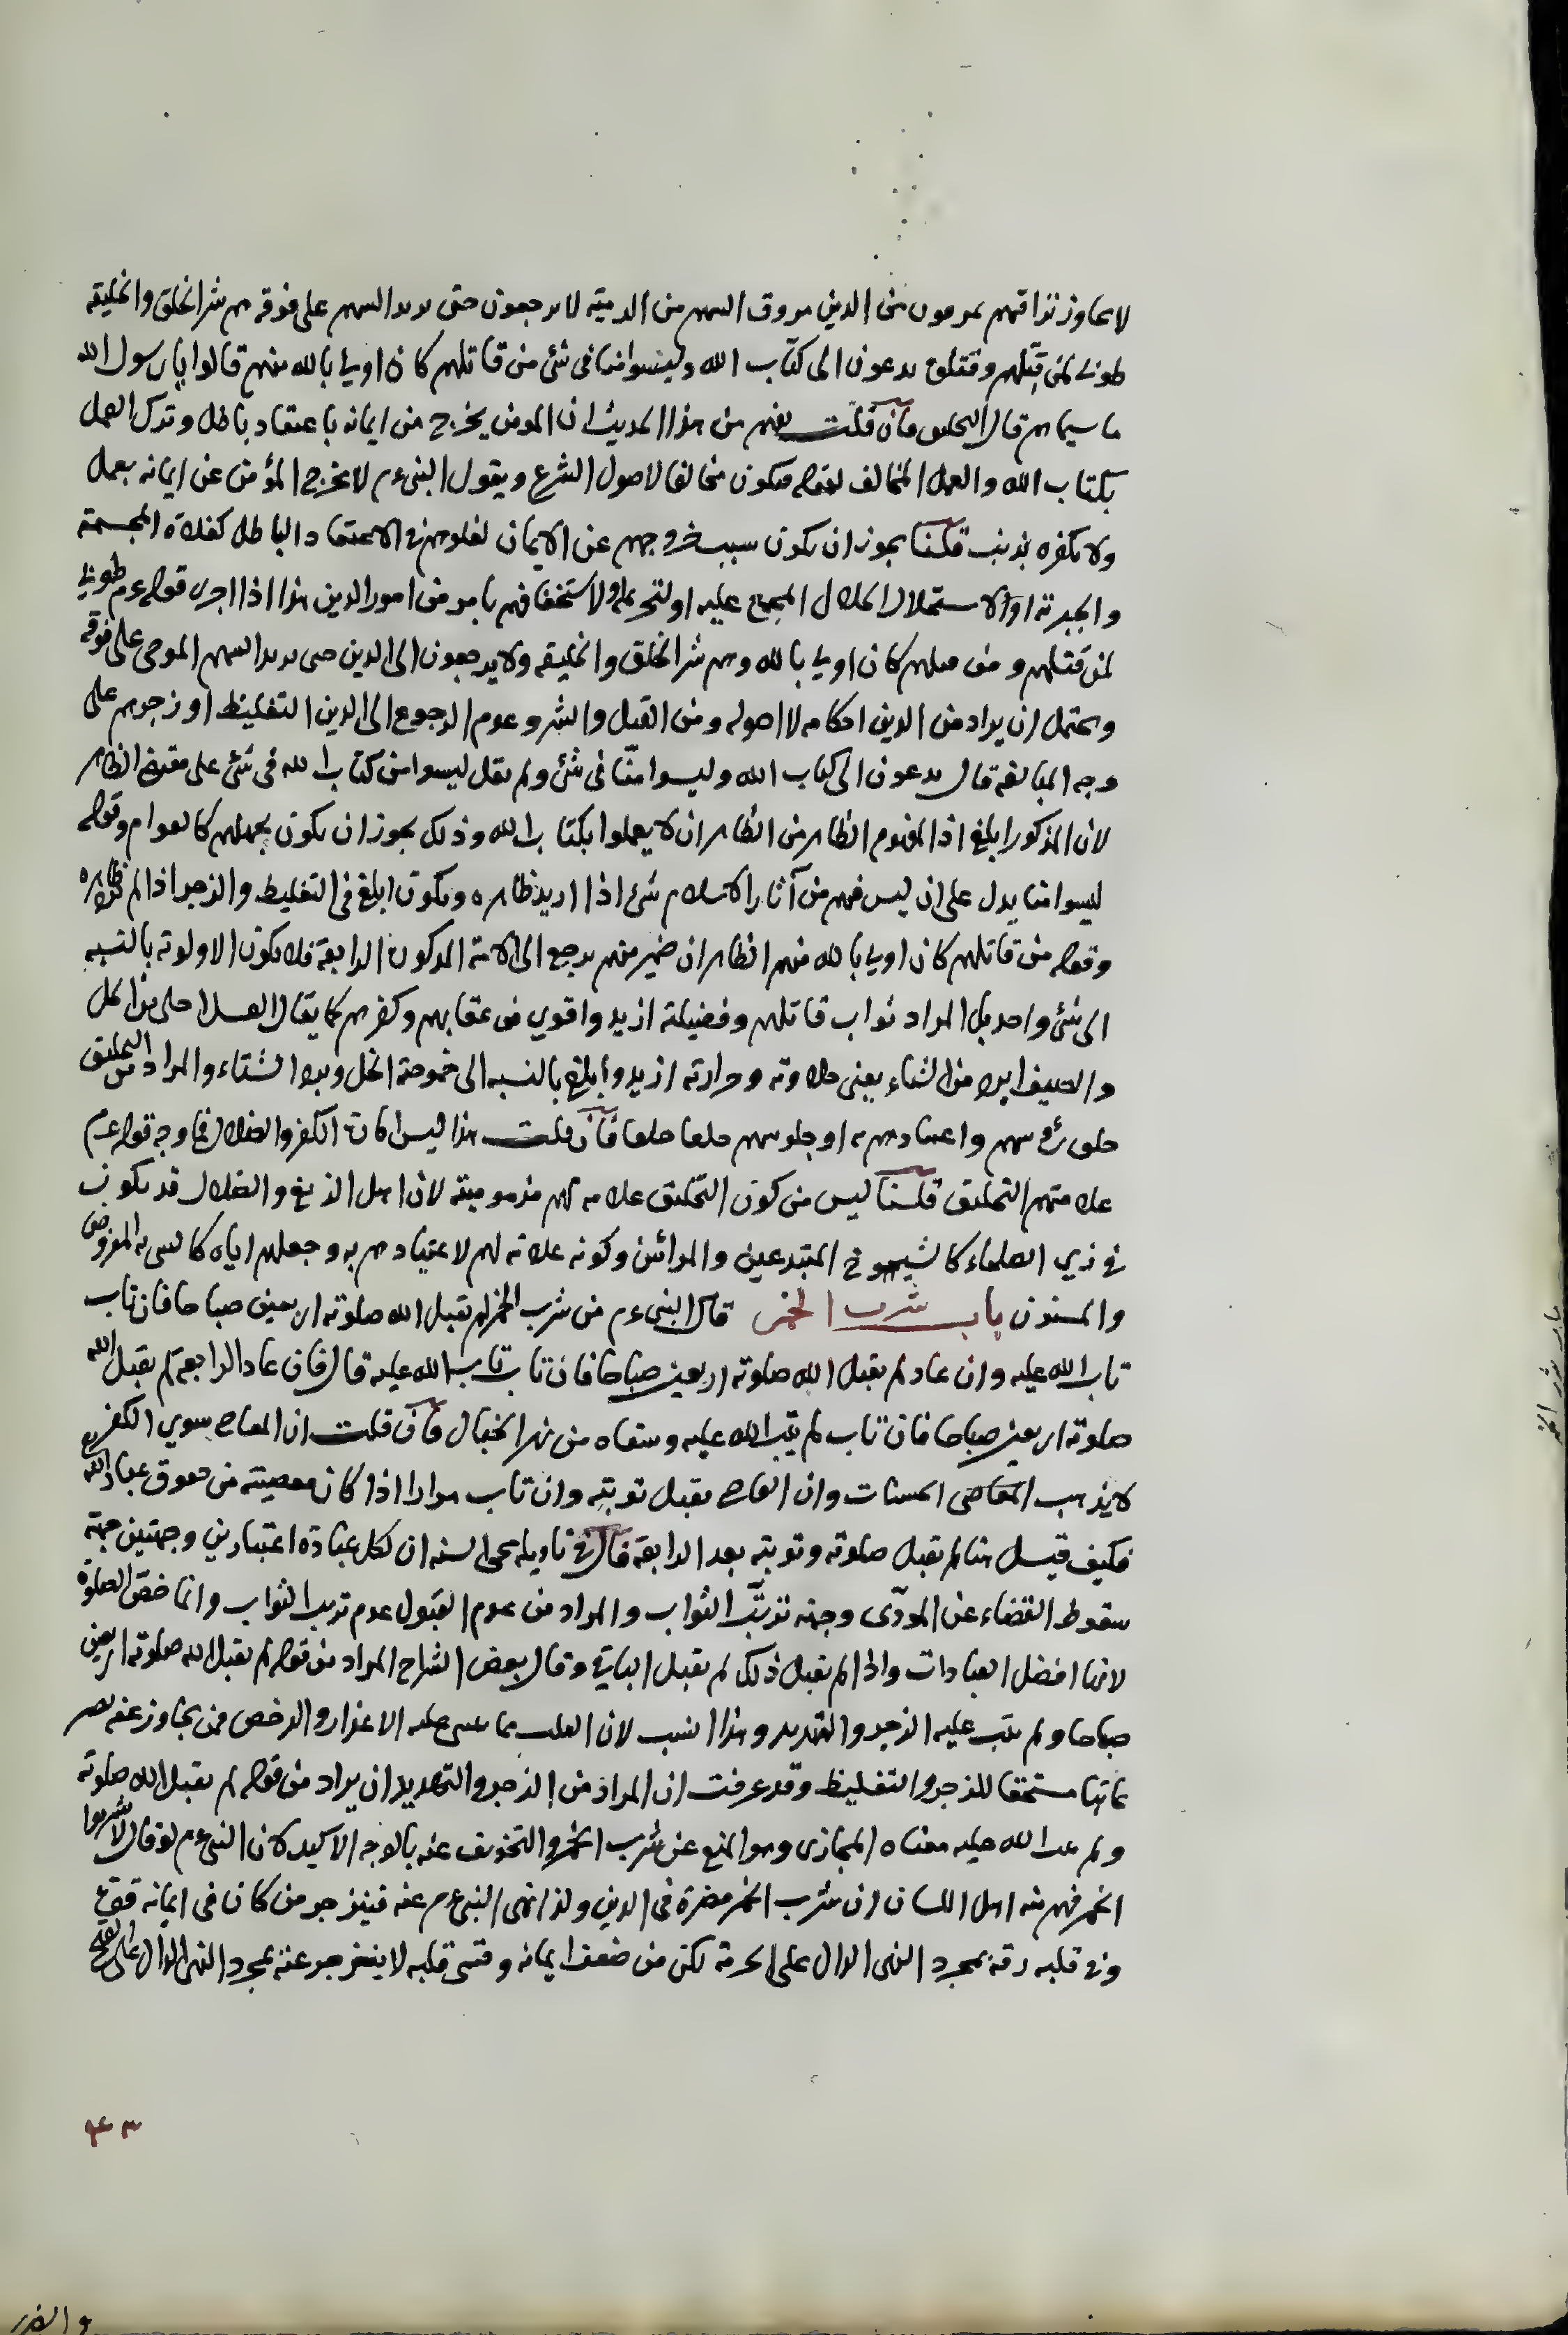 لا يجاوز تراقيهم يمرقون من الدين مروق السهم من الرمية لا يرجعون حتى يرتد السهم على فوقه هم شر الخلق والخليقة
طوبى لمن قتلهم وقتلوه يدعون الى كتاب الله وليسوا منا في شئ من قاتلهم كان اولى بالله منهم قالوا يا رسول الله
ما سيماهم قال التحليق فان قلت يفهم من هذا الحديث ان المومن يخرج من ايمانه باعتقاد باطل وترك العمل
بكتاب الله والعمل المخالف لقوله فيكون مخالفا لاصول الشرع ويقول النبي عم لا يخرج المؤمن عن ايمانه بعمل
ولا نكفره بذنب قلنا يجوز ان يكون سبب خروجهم عن الايمان لغلوهم في الاعتقاد الباطل كغلاة المجسمة
والجبرية او لاستحلال الحلال المجمع عليه او لتحريمه ولاستخفافهم بامر من امور الدين هذا اذا اجرى قوله عم طوبى
لمن قتلهم ومن قتلهم كان اولى بالله وهم شر الخلق والخليقة ولا يرجعون الى الدين حتى يرتد السهم المرمى على فوقه
ويحتمل ان يراد من الدين احكامه لا اصوله ومن القتل والشر وعدم الرجوع الى الدين التغليظ او زجرهم على
وجه المبالغة قال يدعون الى كتاب الله وليسوا منا في شئ ولم يقل ليسوا من كتاب الله في شئ على مقتضى الظاهر
لان المذكور ابلغ اذ المفهوم الظاهر من الظاهر ان لا يعملوا بكتاب الله وذلك يجوز ان يكون بجهلهم كالعوام وقوله
ليسوا منا يدل على ان ليس فيهم من آثار الاسلام شئ اذا اريد ظاهره ويكون ابلغ في التغليظ والزجر اذا لم يكن ظاهره
وقوله من قاتلهم كان اولى بالله منهم الظاهر ان ضمير منهم يرجع الى الامة المذكورة الرابعة فلا يكون الاولوية بالنسبة
الى شئ واحد بل المراد ثواب قاتلهم وفضيلته ازيد واقوى من عقابهم وكفرهم كما يقال العسل احلى من الخل
والصيف ابرد من الشتاء يعني حلاوته وحرارته ازيد وابلغ بالنسبة الى حموضة الخل وبرد الشتاء والمراد من التحليق
حلق رؤسهم واعتيادهم به او جلوسهم حلقا حلقا فان قلت هذا ليس امارة الكفر والضلال فما وجه قوله عم
علامتهم التحليق قلنا ليس من كون التحليق علامة لهم مذموميته لان اهل الزيغ والضلال قد يكون
في زي الصلحاء كالشيوخ المبتدعين والمرائين وكونه علامة لهم لاعتيادهم به وجعلهم اياه كالشيء المفروض
والمسنون باب شرب الخمر قال النبي عم من شرب الخمر لم يقبل الله صلوته اربعين صباحا فان تاب
تاب الله عليه وان عاد لم يقبل الله صلوته اربعين صباحا فان تاب تاب الله عليه قال فان عاد الرابعة لم يقبل الله
صلوته اربعين صباحا فان تاب لم يتب الله عليه وسقاه من نهر الخبال فان قلت ان المعاصي سوى الكفر
لا يذهب المعاصي الحسنات وان العاصي يقبل توبته وان تاب مرارا اذا كان معصيته من حقوق عباد الله
فكيف قيل هنا لم يقبل صلوته وتوبته بعد الرابعة قال في تاويله محي السنه ان لكل عبادة اعتبارين وجهتين جهة
سقوط القضاء عن المودّى وجهة ترتّب الثواب والمراد من عدم القبول عدم ترتب الثواب وانما خصّ الصلوة
لانها افضل العبادات واذا لم يقبل ذلك لم يقبل الباقي وقال بعض الشراح المراد من قوله لم يقبل الله صلوته اربعين
صباحا ولم يتب عليه الزجر والتهديد وهذا انسب لان الاعذار والرخص فمن تجاوز عنه
مستحقا للزجر والتغليظ وقد عرفت ان المراد من الزجر والتهديد ان يراد من قوله لم يقبل الله صلوته
ولم يتب الله عليه معناه المجازى وهو المنع عن شرب الخمر والتخويف عنه بالوجه الاكيد لان النبي عم لو قال لا تشربوا
الخمر فهم منه اهل اللسان ان شرب الخمر مضرة في الدين ولذا نهى النبي عم عنه فينزجر من كان في ايمانه قوة
وفي قلبه رقة بمجرد النهى الدال على الحرمة لكن من ضعف ايمانه وقسى قلبه لا ينزجر عنه بمجرد النهى الدال على القبح
٤٣